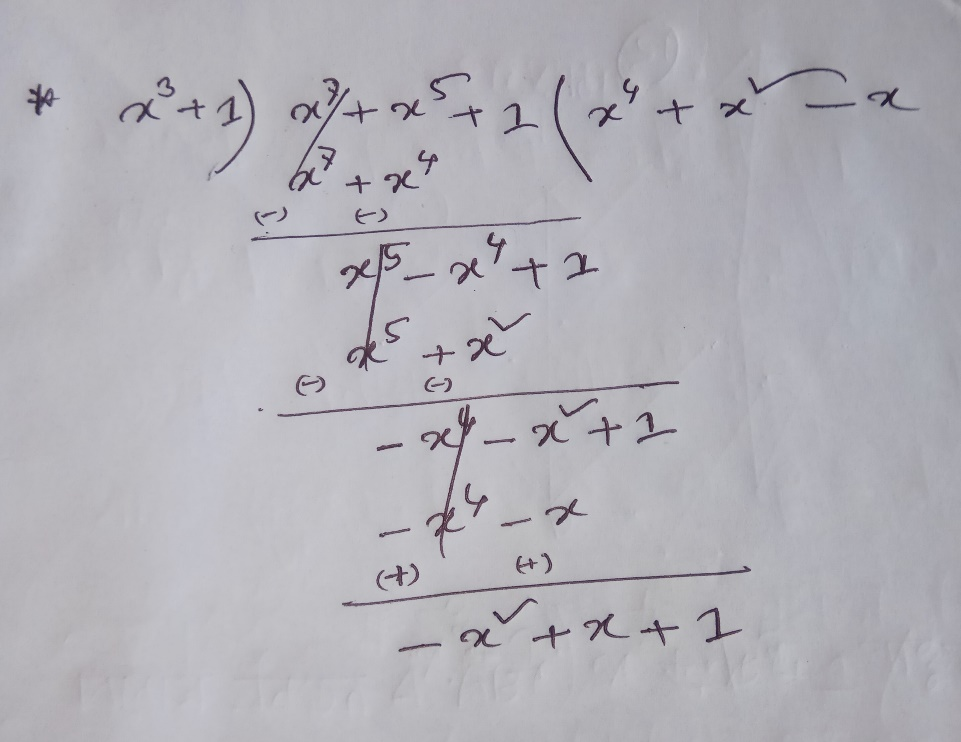 * x³+1) x⁷+x⁵+1(x⁴+x²-x
x⁷+x⁴
(-) (-)
x⁵-x⁴+1
x⁵+x²
(-) (-)
-x⁴-x²+1
-x⁴-x
(+) (+)
-x²+x+1